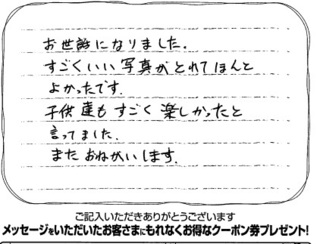 お世話になりました.
すごくいい写真がとれてほんと
よかったです.
子供達もすごく楽しかったと
言ってました.
またおねがいします.
ご記入いただきありがとうございます
メッセージをいただいたお客さまにもれなくお得なクーポン券プレゼント!